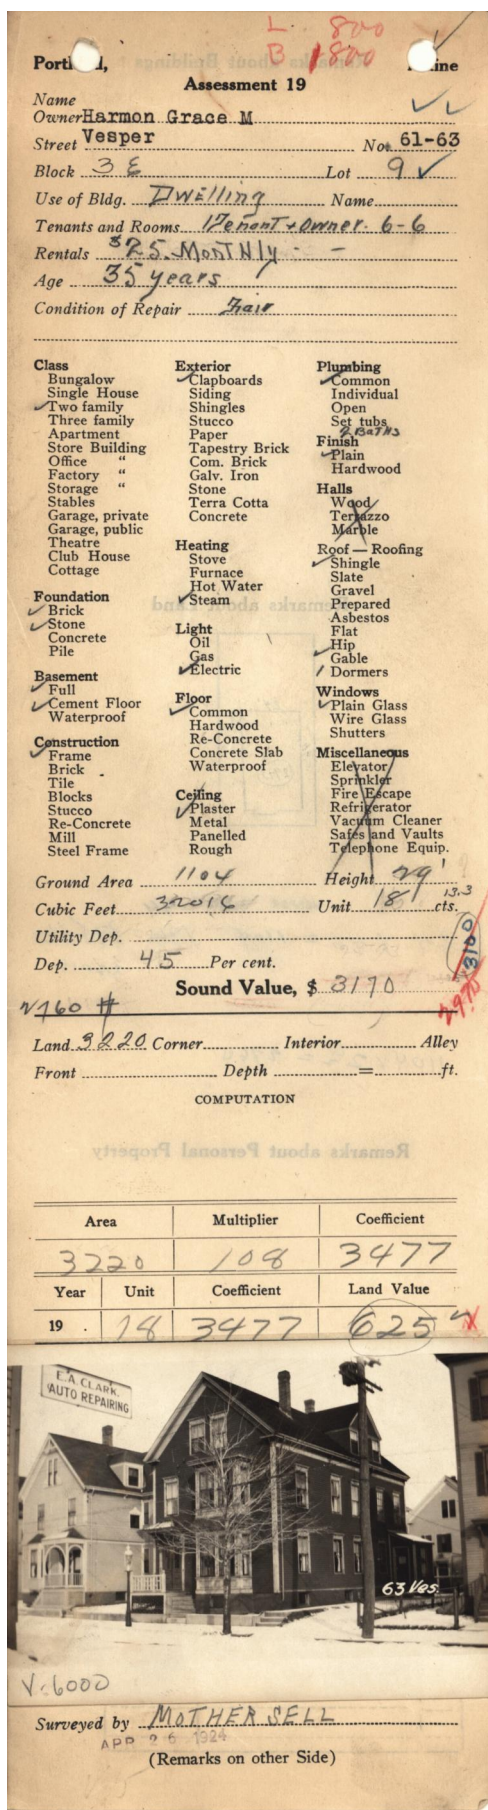 L. 800
B 1800
Portland, Maine
Assessment 19
Name
Owner Harmon Grace M
Street Vesper No. 61-63
Block 3 E Lot 9 ✓
Use of Bldg. Dwelling Name
Tenants and Rooms 1 Tenant + Owner. 6-6
Rentals $25. Monthly - -
Age 35 years
Condition of Repair Fair
Class
Bungalow
Single House
✓ Two family
Three family
Apartment
Store Building
Office "
Factory "
Storage "
Stables
Garage, private
Garage, public
Theatre
Club House
Cottage
Foundation
✓ Brick
✓ Stone
Concrete
Pile
Basement
✓ Full
✓ Cement Floor
Waterproof
Construction
✓ Frame
Brick
Tile
Blocks
Stucco
Re-Concrete
Mill
Steel Frame
Exterior
✓ Clapboards
Siding
Shingles
Stucco
Paper
Tapestry Brick
Com. Brick
Galv. Iron
Stone
Terra Cotta
Concrete
Heating
Stove
Furnace
Hot Water
✓ Steam
Light
Oil
Gas
✓ Electric
Floor
✓ Common
Hardwood
Re-Concrete
Concrete Slab
Waterproof
Ceiling
✓ Plaster
Metal
Panelled
Rough
Plumbing
✓ Common
Individual
Open
Set tubs
2 Baths
Finish
✓ Plain
Hardwood
Halls
Wood
Terrazzo
Marble
Roof — Roofing
✓ Shingle
Slate
Gravel
Prepared
Asbestos
Flat
✓ Hip
Gable
1 Dormers
Windows
✓ Plain Glass
Wire Glass
Shutters
Miscellaneous
Elevator
Sprinkler
Fire Escape
Refrigerator
Vacuum Cleaner
Safes and Vaults
Telephone Equip.
Ground Area 1104 Height 29'
Cubic Feet 32016 Unit 18 13.3 cts.
Utility Dep.
3100
Dep. 45 Per cent.
2970
Sound Value, $ 3170
Land 3220 Corner Interior Alley
Front Depth = ft.
COMPUTATION
Area Multiplier Coefficient
3220 108 3477
Year Unit Coefficient Land Value
19 . 18 3477 625
E.A. CLARK.
AUTO REPAIRING
63 Ves.
V-6000
Surveyed by MOTHERSELL
APR 26 1924
(Remarks on other Side)